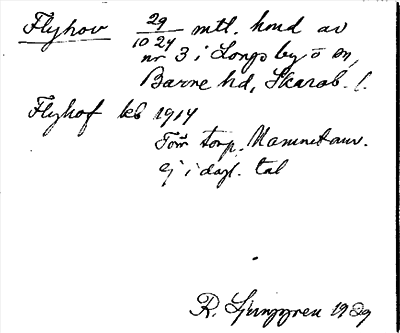 Flyhov 29/1024 mtl. hmd av
nr 3 i Longs by o sn,
Barne hd, Skarab. l.
Flyhof leb 1914
Torp. Namnet anv.
ej i dagl. tal
R. Ljunggren 1929